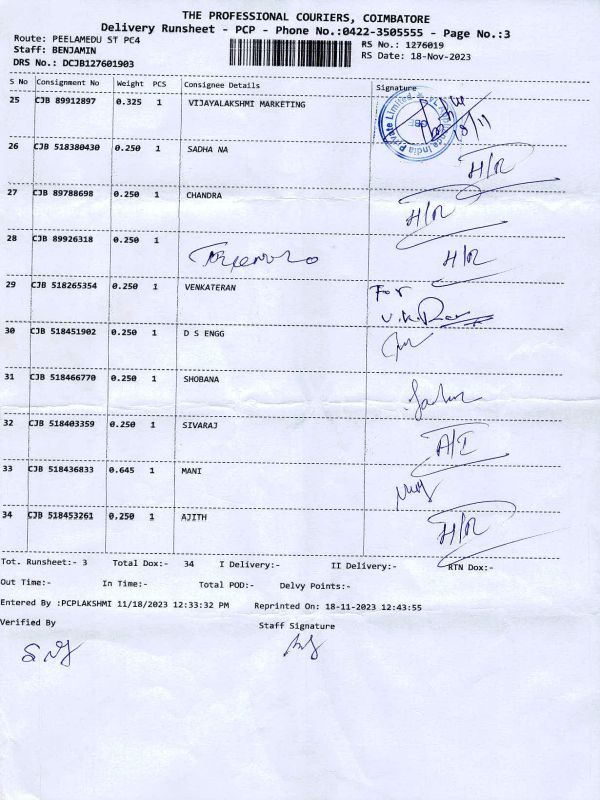 THE PROFESSIONAL COURIERS, COIMBATORE
Delivery Runsheet - PCP - Phone No.:0422-3505555 - Page No.:3
Route: PEELAMEDU ST PC4 RS No.: 1276019
Staff: BENJAMIN RS Date: 18-Nov-2023
DRS No.: DCJB127601903
S No Consignment No Weight PCS Consignee Details Signature
25 CJB 89912897 0.325 1 VIJAYALAKSHMI MARKETING
Private Limited
18/11
26 CJB 518380430 0.250 1 SADHA NA H/R
27 CJB 89788698 0.250 1 CHANDRA H/R
28 CJB 89926318 0.250 1 H/R
29 CJB 518265354 0.250 1 VENKATERAN For
30 CJB 518451902 0.250 1 D S ENGG
31 CJB 518466770 0.250 1 SHOBANA
32 CJB 518403359 0.250 1 SIVARAJ A/I
33 CJB 518436833 0.645 1 MANI
34 CJB 518453261 0.250 1 AJITH H/R
Tot. Runsheet:- 3 Total Dox:- 34 I Delivery:- II Delivery:- RTN Dox:-
Out Time:- In Time:- Total POD:- Delvy Points:-
Entered By :PCPLAKSHMI 11/18/2023 12:33:32 PM Reprinted On: 18-11-2023 12:43:55
Verified By Staff Signature